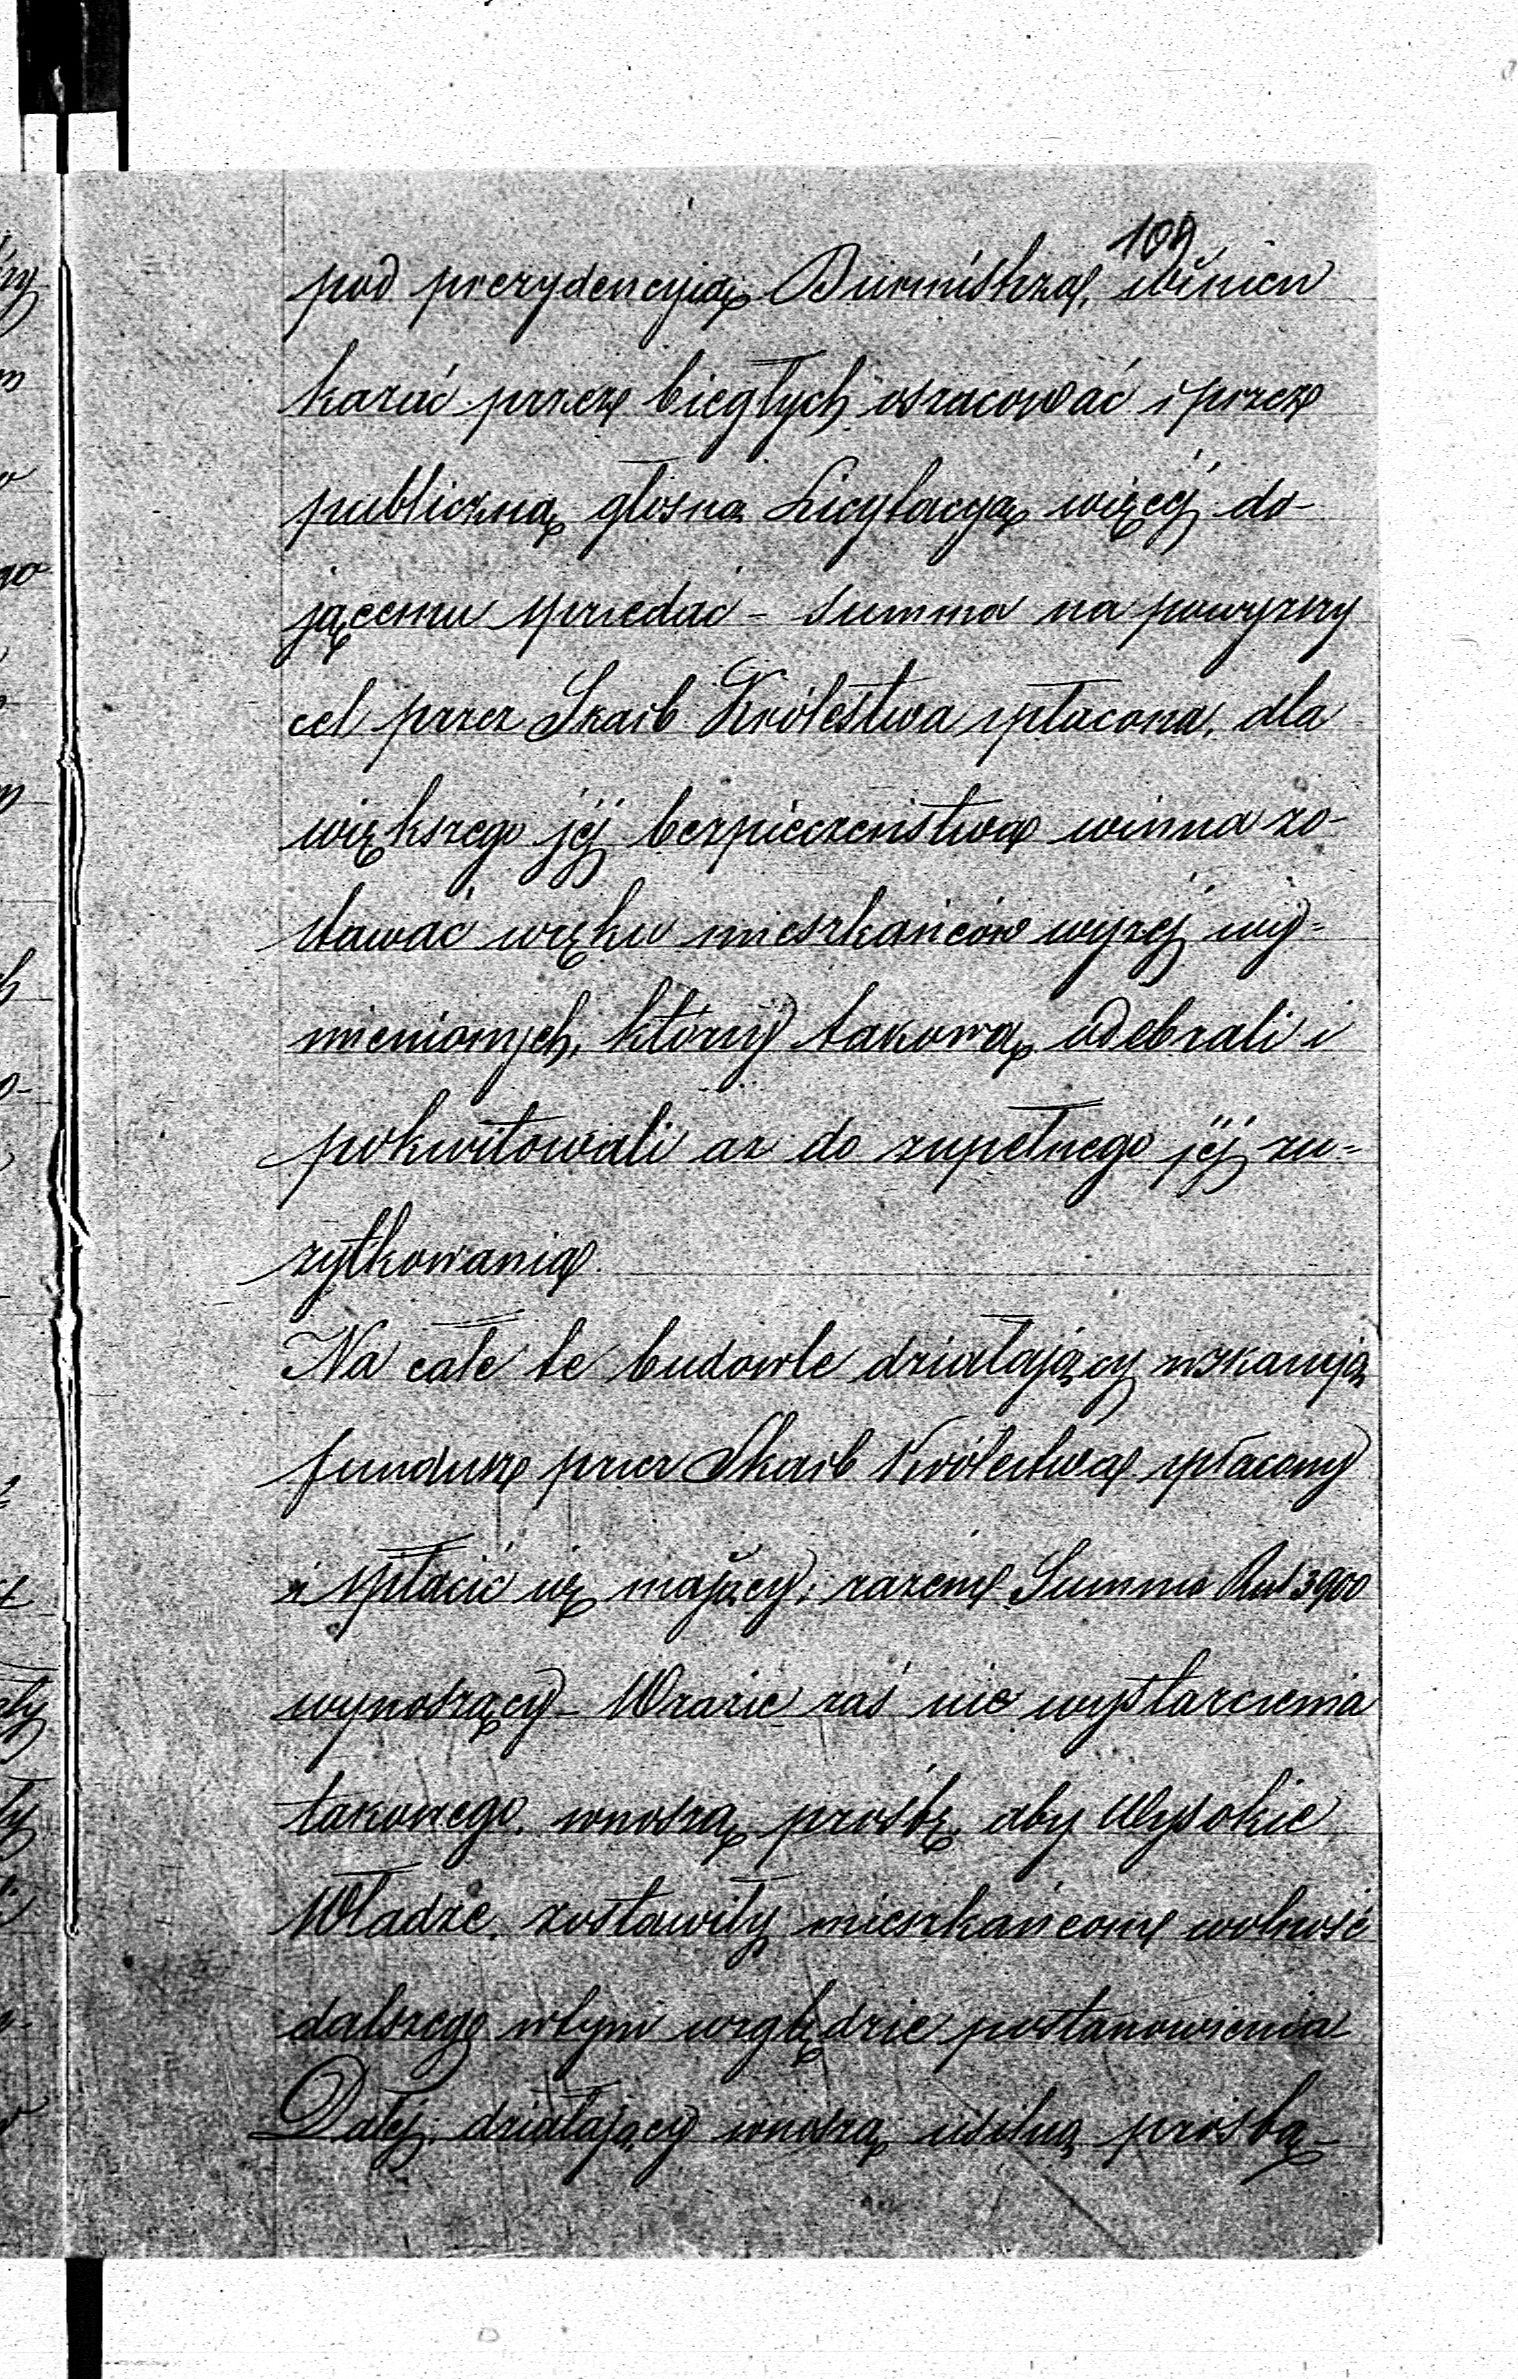 109
pod prezydencyią Burmistrza, winien
kazać przez biegłych oszacować i przez
publiczną głosną Licytacyą więcéj da-
jącemu sprzedać – summa na powyzszy
cel przez Skarb Królestwa spłacona, dla
większego jéj bezpieczeństwa winna zo-
stawać w ręku mieszkańców wyzéj wy=
mienionych, którzy takową odebrali i
pokwitowali az do zupełnego jéj zu=
zytkowania
Na całe te budowle działający wskazują
fundusz przez Skarb Królestwa spłacony
i spłacić się mający, razem Summa Rub 3900
wynoszący – W razie zaś nie wystarczenia
takowego, wnoszą prośbę, aby Wysokie
Władze, zostawiły mieszkańcom wolność
dalszego w tym względzie postanowienia
Daléj działający wnoszą usilną prośbą